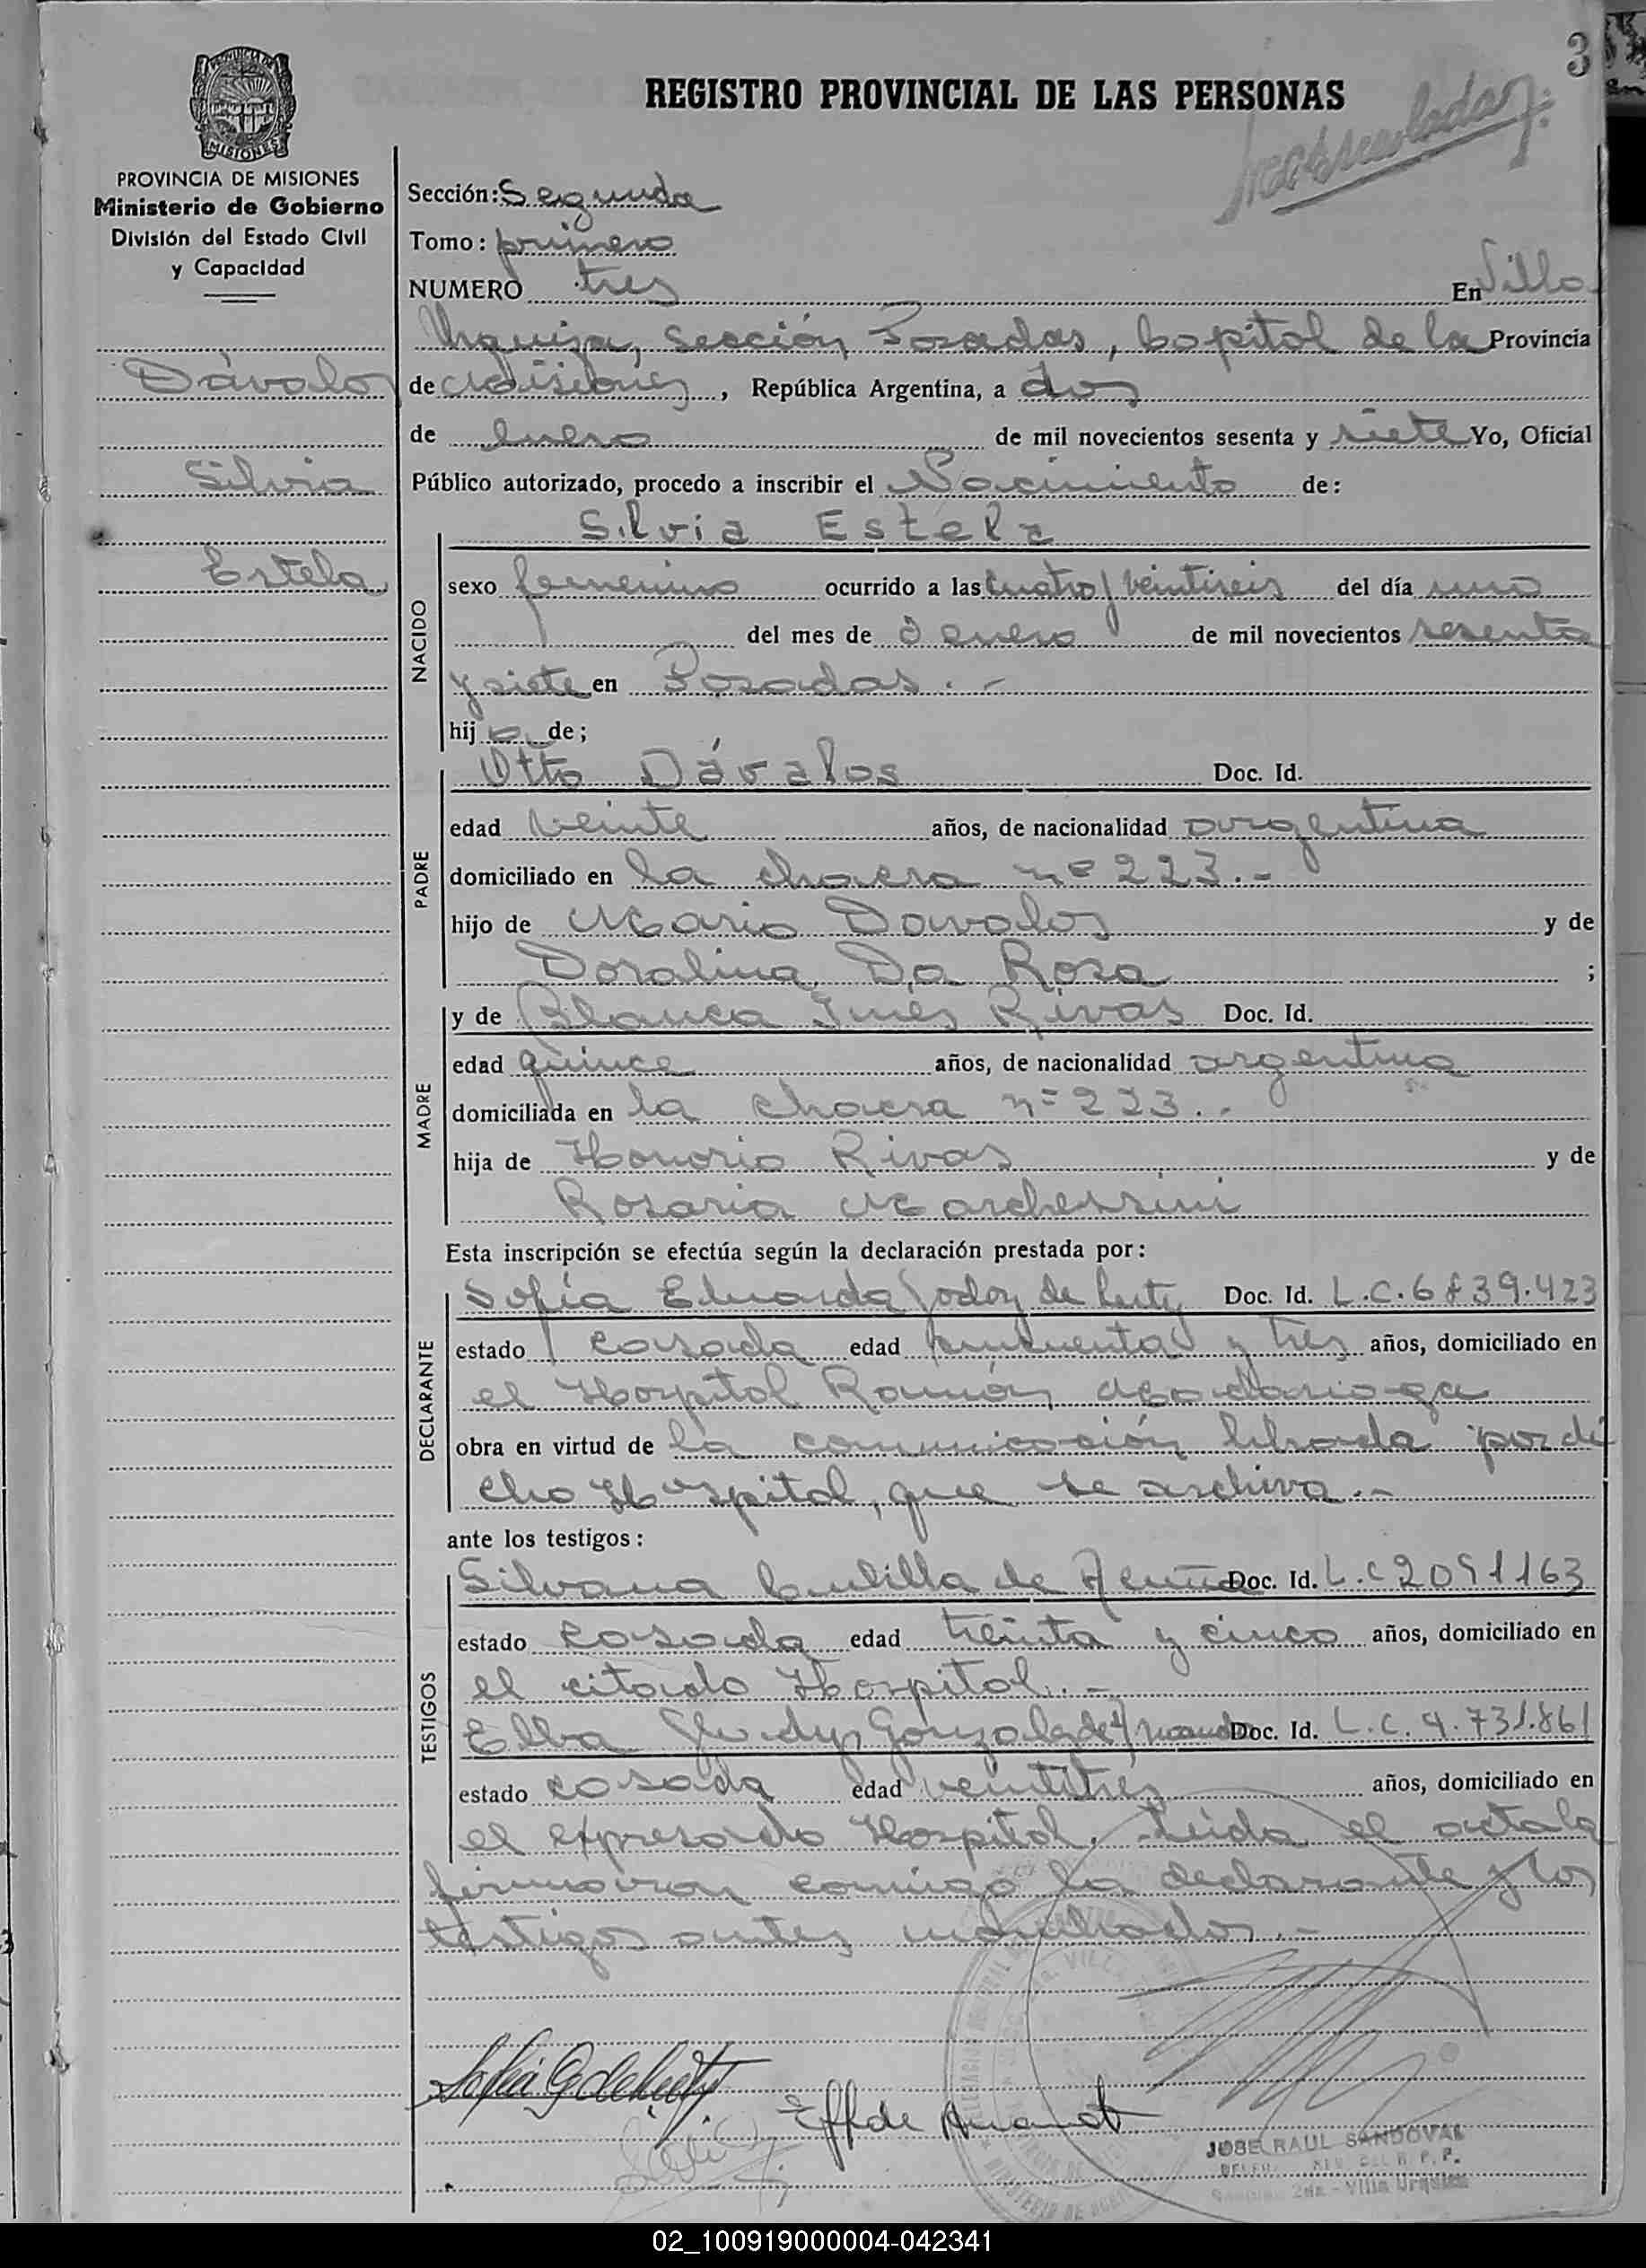 3
REGISTRO PROVINCIAL DE LAS PERSONAS
PROVINCIA DE MISIONES
Ministerio de Gobierno
División del Estado Civil
y Capacidad
Dávalos
Silvia
Estela
Sección: Segunda
Tomo: primero
NUMERO tres En Villa
Urquiza, Sección Posadas, Capital de la Provincia
de Misiones, República Argentina, a dos
de Enero de mil novecientos sesenta y siete Yo, Oficial
Público autorizado, procedo a inscribir el Nacimiento de:
Silvia Estela
NACIDO
sexo femenino ocurrido a las cuatro/veintiseis del día uno
del mes de enero de mil novecientos sesenta
y siete en Posadas.-
hij a de;
PADRE
Otto Dávalos Doc. Id.
edad veinte años, de nacionalidad argentina
domiciliado en la chacra nº 223.-
hijo de Mario Davalos y de
Doralina Da Rosa ;
MADRE
y de Blanca Inés Rivas Doc. Id.
edad quince años, de nacionalidad argentina
domiciliada en la chacra nº 223.-
hija de Honorio Rivas y de
Rosaria Marchessini
Esta inscripción se efectúa según la declaración prestada por:
DECLARANTE
Sofía Eduarda Godoy de Doc. Id. L.C. 6839.423
estado casada edad cincuenta y tres años, domiciliado en
el Hospital Ramón Madariaga
obra en virtud de la comunicación librada por di
cho Hospital, que se archiva.-
ante los testigos:
TESTIGOS
Silvana de Doc. Id. L.C 2091163
estado casada edad treinta y cinco años, domiciliado en
el citado Hospital.-
Elba Gladys Gonzalez de Doc. Id. L.C. 4.731.861
estado casada edad veintitrés años, domiciliado en
el expresado Hospital. Leida el acta la
firmaron conmigo la declarante y los
testigos antes nombrados.-
JOSE RAUL SANDOVAL
2da - Villa Urquiza
02_100919000004-042341